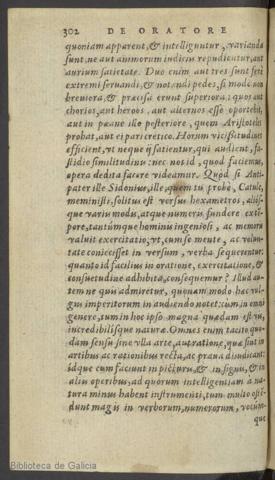 302 DE ORATORE
quoniam apparent, & intelliguntur, varianda
sunt, ne aut animorum iudiciis repudientur, aut
aurium satietate. Duo enim aut tres sunt ferè
extremi seruandi, & notandi pedes, si modò non
breuiora, & præcisa erunt superiora: quos aut
chorios, aut heroos, aut alternos esse oportebit,
aut in pæane illo posteriore, quem Aristoteles
probat, aut ei pari cretico. Horum vicißitudines
efficient, vt neque ij satientur, qui audient, fa-
stidio similitudinis: nec nos id, quod faciemus,
opera dedita facere videamur. Quòd si Anti-
pater ille Sidonius, ille, quem tu probè, Catule,
meministi, solitus est versus hexametros, alios-
que varijs modis, atque numeris fundere extē-
pore, tantúmque hominis ingeniosi, ac memoris
valuit exercitatio, vt, cum se mente, ac volun-
tate coniecisset in versum, verba sequerentur:
quanto id facilius in oratione, exercitatione, &
consuetudine adhibita, consequemur? Illud au-
tem ne quis admiretur, quonam modo hæc vul-
gus imperitorum in audiendo notet: cum in omni
genere, tum in hoc ipso magna quædam est vis,
incredibilisque naturæ. Omnes enim tacito quo-
dam sensu sine vlla arte, aut ratione, quæ sint in
artibus ac rationibus recta, ac praua diiudicant:
idque cum faciunt in picturis, & in signis, & in
aliis operibus, ad quorum intelligentiam à na-
tura minus habent instrumenti, tum multo oste-
dunt magis in verborum, numerorum, vocum-
que
Biblioteca de Galicia